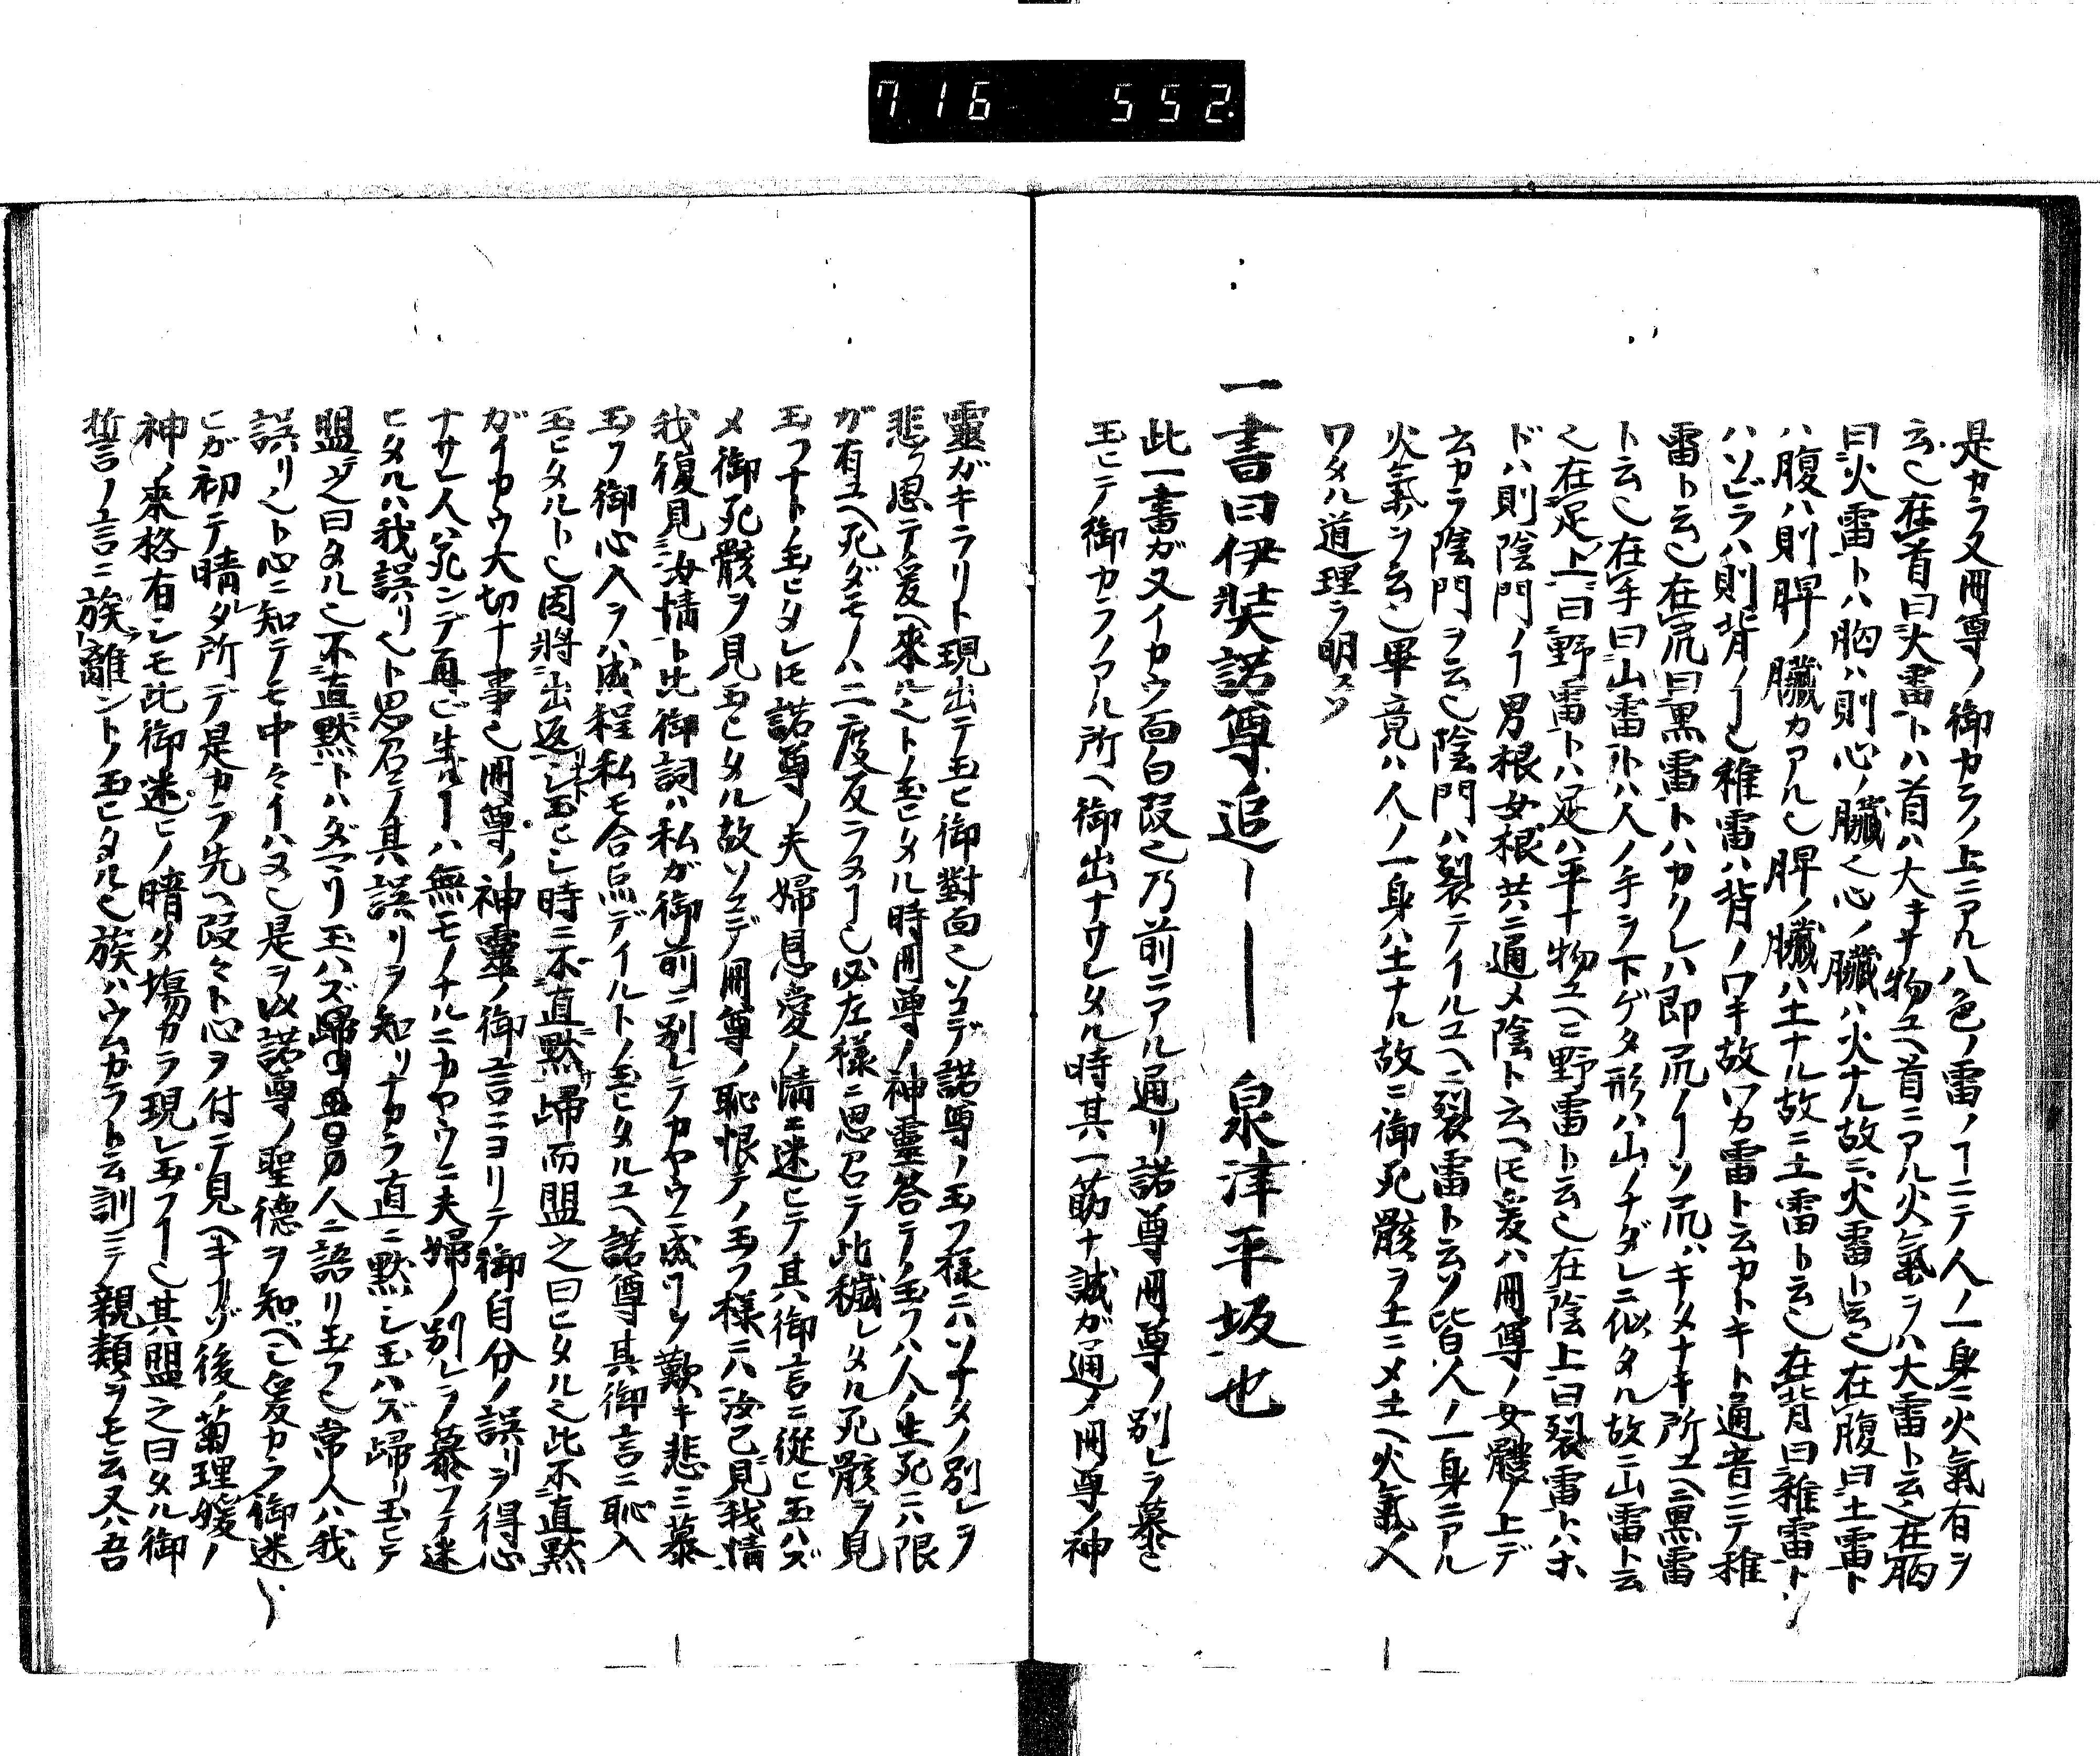 716 552
是カラ又冊尊ノ御カラノ上ニアル八色ノ雷ノヿニテ人ノ一身ニ火氣有ヲ
云也在首曰大雷トハ首ハ大キナ物ユヘ首ニアル火氣ヲハ大雷ト云也在胸
曰火雷トハ胸ハ則心ノ臟也心ノ臟ハ火ナル故ニ火雷ト云也在腹曰土雷ト
ハ腹ハ則脾ノ臟カアル也脾ノ臟ハ土ナル故ニ土雷ト云也在背曰稚雷ト
ハソビラハ則背ノヿ也稚雷ハ背ノワキ故ワカ雷ト云カトキト通音ニテ稚
雷ト云也在尻曰黒雷トハカクレハ即尻ノヿソ尻ハキタナキ所ユヘニ黒雷
ト云也在手曰山雷トハ人ノ手ヲ下ゲタ形ハ山ノナダレニ似タル故ニ山雷ト云
也在足上曰野雷トハ足ハ平ナ物ユヘニ野雷ト云也在陰上曰裂雷トハホ
ドハ則陰門ノヿ男根女根共ニ通メ陰ト云ヘ𪜈爰ハ冊尊ノ女體ノ上デ
云カラ陰門ヲ云也陰門ハ裂テイルユヘニ裂雷ト云ソ皆人ノ一身ニアル
火氣ヲ云也畢竟ハ人ノ一身ハ土ナル故ニ御死骸ヲ土ニメ土ヘ火氣ノ入
ワタル道理ヲ明スソ
一書曰伊弉諾尊追ーーー泉津平坂也
此一書ガ又イカウ面白段也乃前ニアル通リ諾尊冊尊ノ別レヲ慕ヒ
玉ヒテ御カラノアル所ヘ御出ナサレタル時其一筋ナ誠ガ通メ冊尊ノ神
靈ガキラリト現出テ玉ヒ御對面也ソコデ諾尊ノ玉フ様ニハソナタノ別レヲ
悲ク思テ爰ヘ來ルゾトノ玉ヒタル時冊尊ノ神靈答テノ玉フハ人ノ生死ニハ限
ガ有ユヘ死ダモノハ二度反ラヌヿ也必左様ニ思召テ此穢レタル死骸ヲ見
玉フナトノ玉ヒタレ𪜈諾尊ノ夫婦恩愛ノ情ニ迷ヒテ其御言ニ從ヒ玉ハズ
メ御死骸ヲ見玉ヒタル故ソコデ冊尊ノ恥恨テノ玉フ様ニハ汝已見我情
我復見汝情ト此御詞ハ私ガ御前ニ別レテカヤウニ成リシヲ歎キ悲ミ慕
玉フ御心入ヲハ成程私モ合点デイルトノ玉ヒタルユヘ諾尊其御言ニ恥入
玉ヒタルト也因將出返玉ヒシ時ニ不直默歸而盟之曰ヒタル也此不直默
ガイカウ大切ナ事也冊尊ノ神靈ノ御言ニヨリテ御自分ノ誤リヲ得心
ナサレ人ハ死ンデ再ビ生ルヿハ無モノナルニカヤウニ夫婦ノ別レヲ慕フテ迷
ヒタルハ我誤リ也ト思召テ其誤リヲ知リナカラ直ニ默シ玉ハズ歸リ玉ヒテ
盟之曰タル也不直默トハダマリ玉ハズ人ニ語リ玉フ也常人ハ我
誤リ也ト心ニ知テモ中々イハヌ也是ヲ以諾尊ノ聖德ヲ知ベシ爰カラ御迷
ヒガ初テ晴タ所デ是カラ先ヘ段々ト心ヲ付テ見ヘキヿゾ後ノ菊理媛ノ
神ノ來格有シモ此御迷ヒノ暗タ塲カラ現レ玉フヿ也其盟之曰タル御
誓ノ言ニ族離ントノ玉ヒタル也族ハウカラト云訓ニテ親類ヲモ云又ハ吾